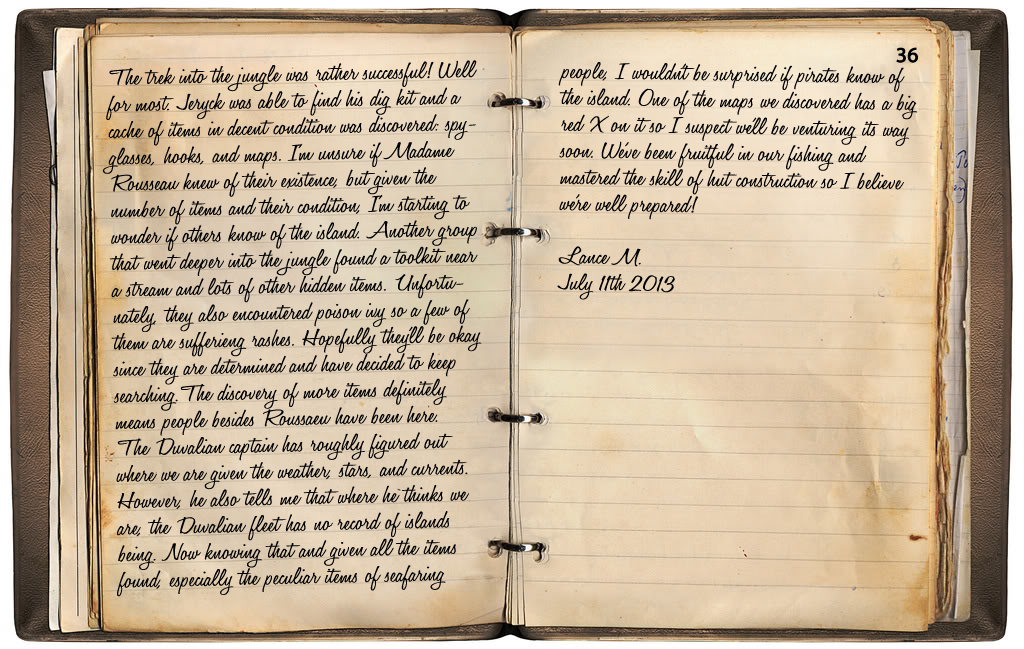 The trek into the jungle was rather successful! Well
for most. Jeryck was able to find his dig kit and a
cache of items in decent condition was discovered: spy-
glasses, hooks, and maps. I'm unsure if Madame
Rousseau knew of their existence, but given the
number of items and their condition, I'm starting to
wonder if others know of the island. Another group
that went deeper into the jungle found a toolkit near
a stream and lots of other hidden items. Unfortu-
nately, they also encountered poison ivy so a few of
them are sufferieng rashes. Hopefully they'll be okay
since they are determined and have decided to keep
searching. The discovery of more items definitely
means people besides Roussaeu have been here.
The Duvalian captain has roughly figured out
where we are given the weather, stars, and currents.
However, he also tells me that where he thinks we
are, the Duvalian fleet has no record of islands
being. Now knowing that and given all the items
found, especially the peculiar items of seafaring
36
people, I wouldn't be surprised if pirates know of
the island. One of the maps we discovered has a big
red X on it so I suspect we'll be venturing its way
soon. We've been fruitful in our fishing and
mastered the skill of hut construction so I believe
we're well prepared!
Lance M.
July 11th 2013